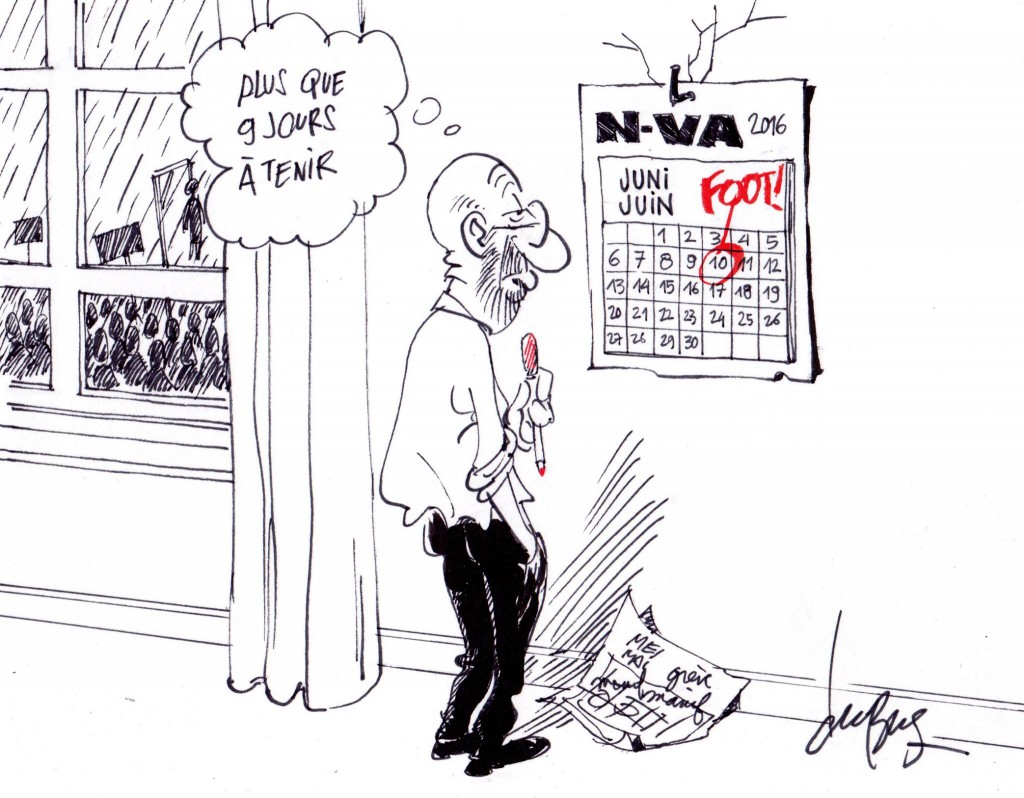 PLUS QUE
9 JOURS
À TENIR
N-VA 2016
JUNI
JUIN
FOOT!
1 2 3 4 5
6 7 8 9 10 11 12
13 14 15 16 17 18 19
20 21 22 23 24 25 26
27 28 29 30
MEI
MAI
grève
manif